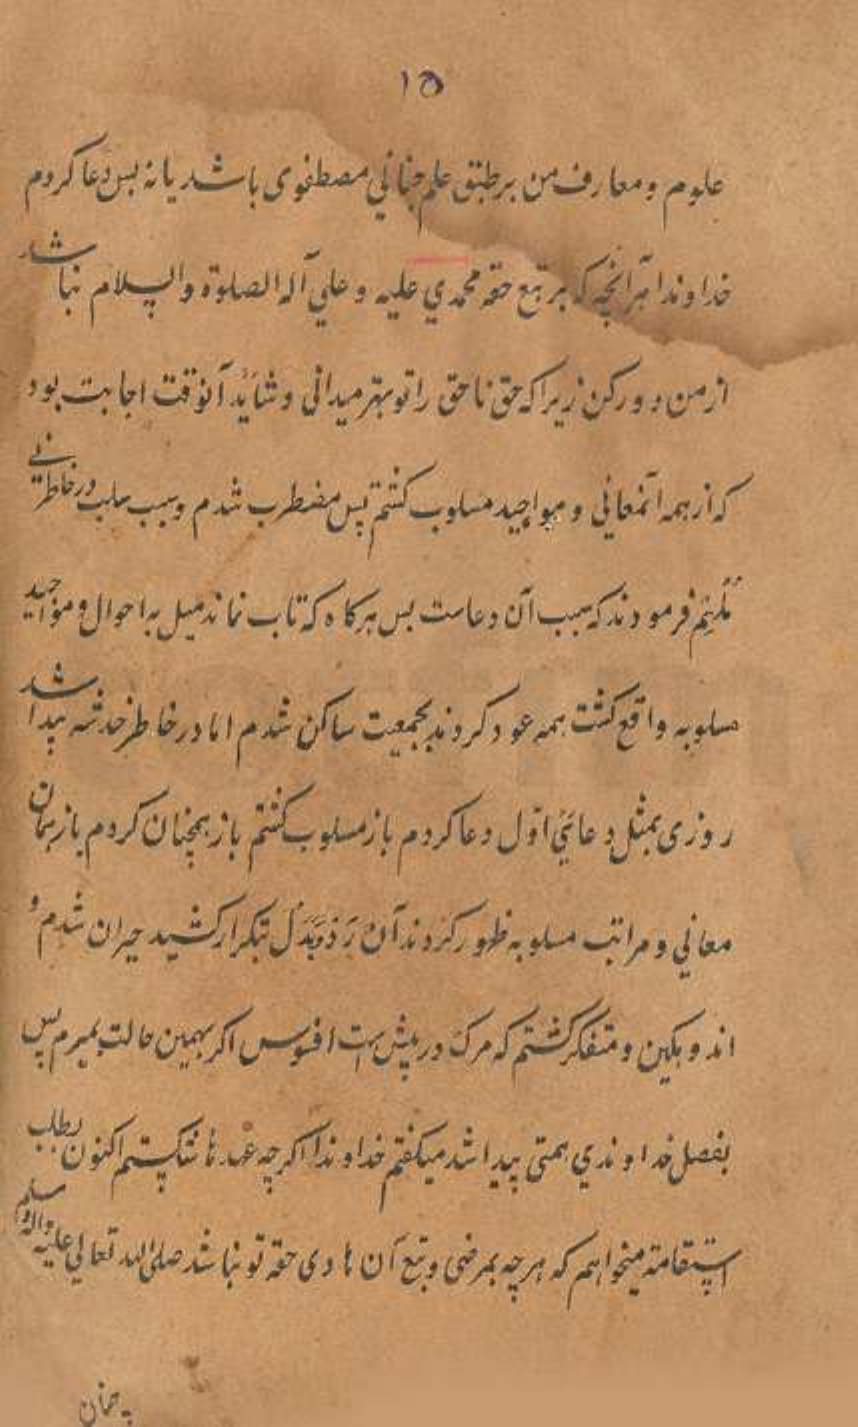 ۱۵
علوم و معارف من بر طبق علم جنانی مصطفوی باشد یا نه پس دعا کردم
خداوندا هر آنچه که بر تبع حقه محمدي علیه و علي آله الصلوة والسلام نباشد
از من دور کن زیرا که حق ناحق را تو بهتر میدانی و شاید آنوقت اجابت بود
که از همه آنمعانی و مواجید مسلوب کشتم پس مضطرب شدم و سبب سلب در خاطر نی
ملهم فرمودند که سبب آن دعاست پس هرکاه که تاب نماند میل به احوال و مواجید
مسلوبه واقع کشت همه عود کردند بجمعیت ساکن شدم اما در خاطر خدشه پیدا شد
روزی بمثل دعائي اول دعا کردم باز مسلوب کشتم باز همچنان کردم باز همان
معاني و مراتب مسلوبه ظهور کردند آن رد و بدل بتکرار کشید حیران شدم و
اندوهکین و متفکر کشتم که مرک در پیش است افسوس اکر بهمین حالت بمیرم پس
بفضل خداوندي همتی پیدا شد میکفتم خداوندا اکرچه عهدها شکستم اکنون بطلب
استقامة میخواهم که هرچه بمرضی و تبع آن هادی حقه تو نباشد صلی الله تعالي علیه واله وسلم
همان